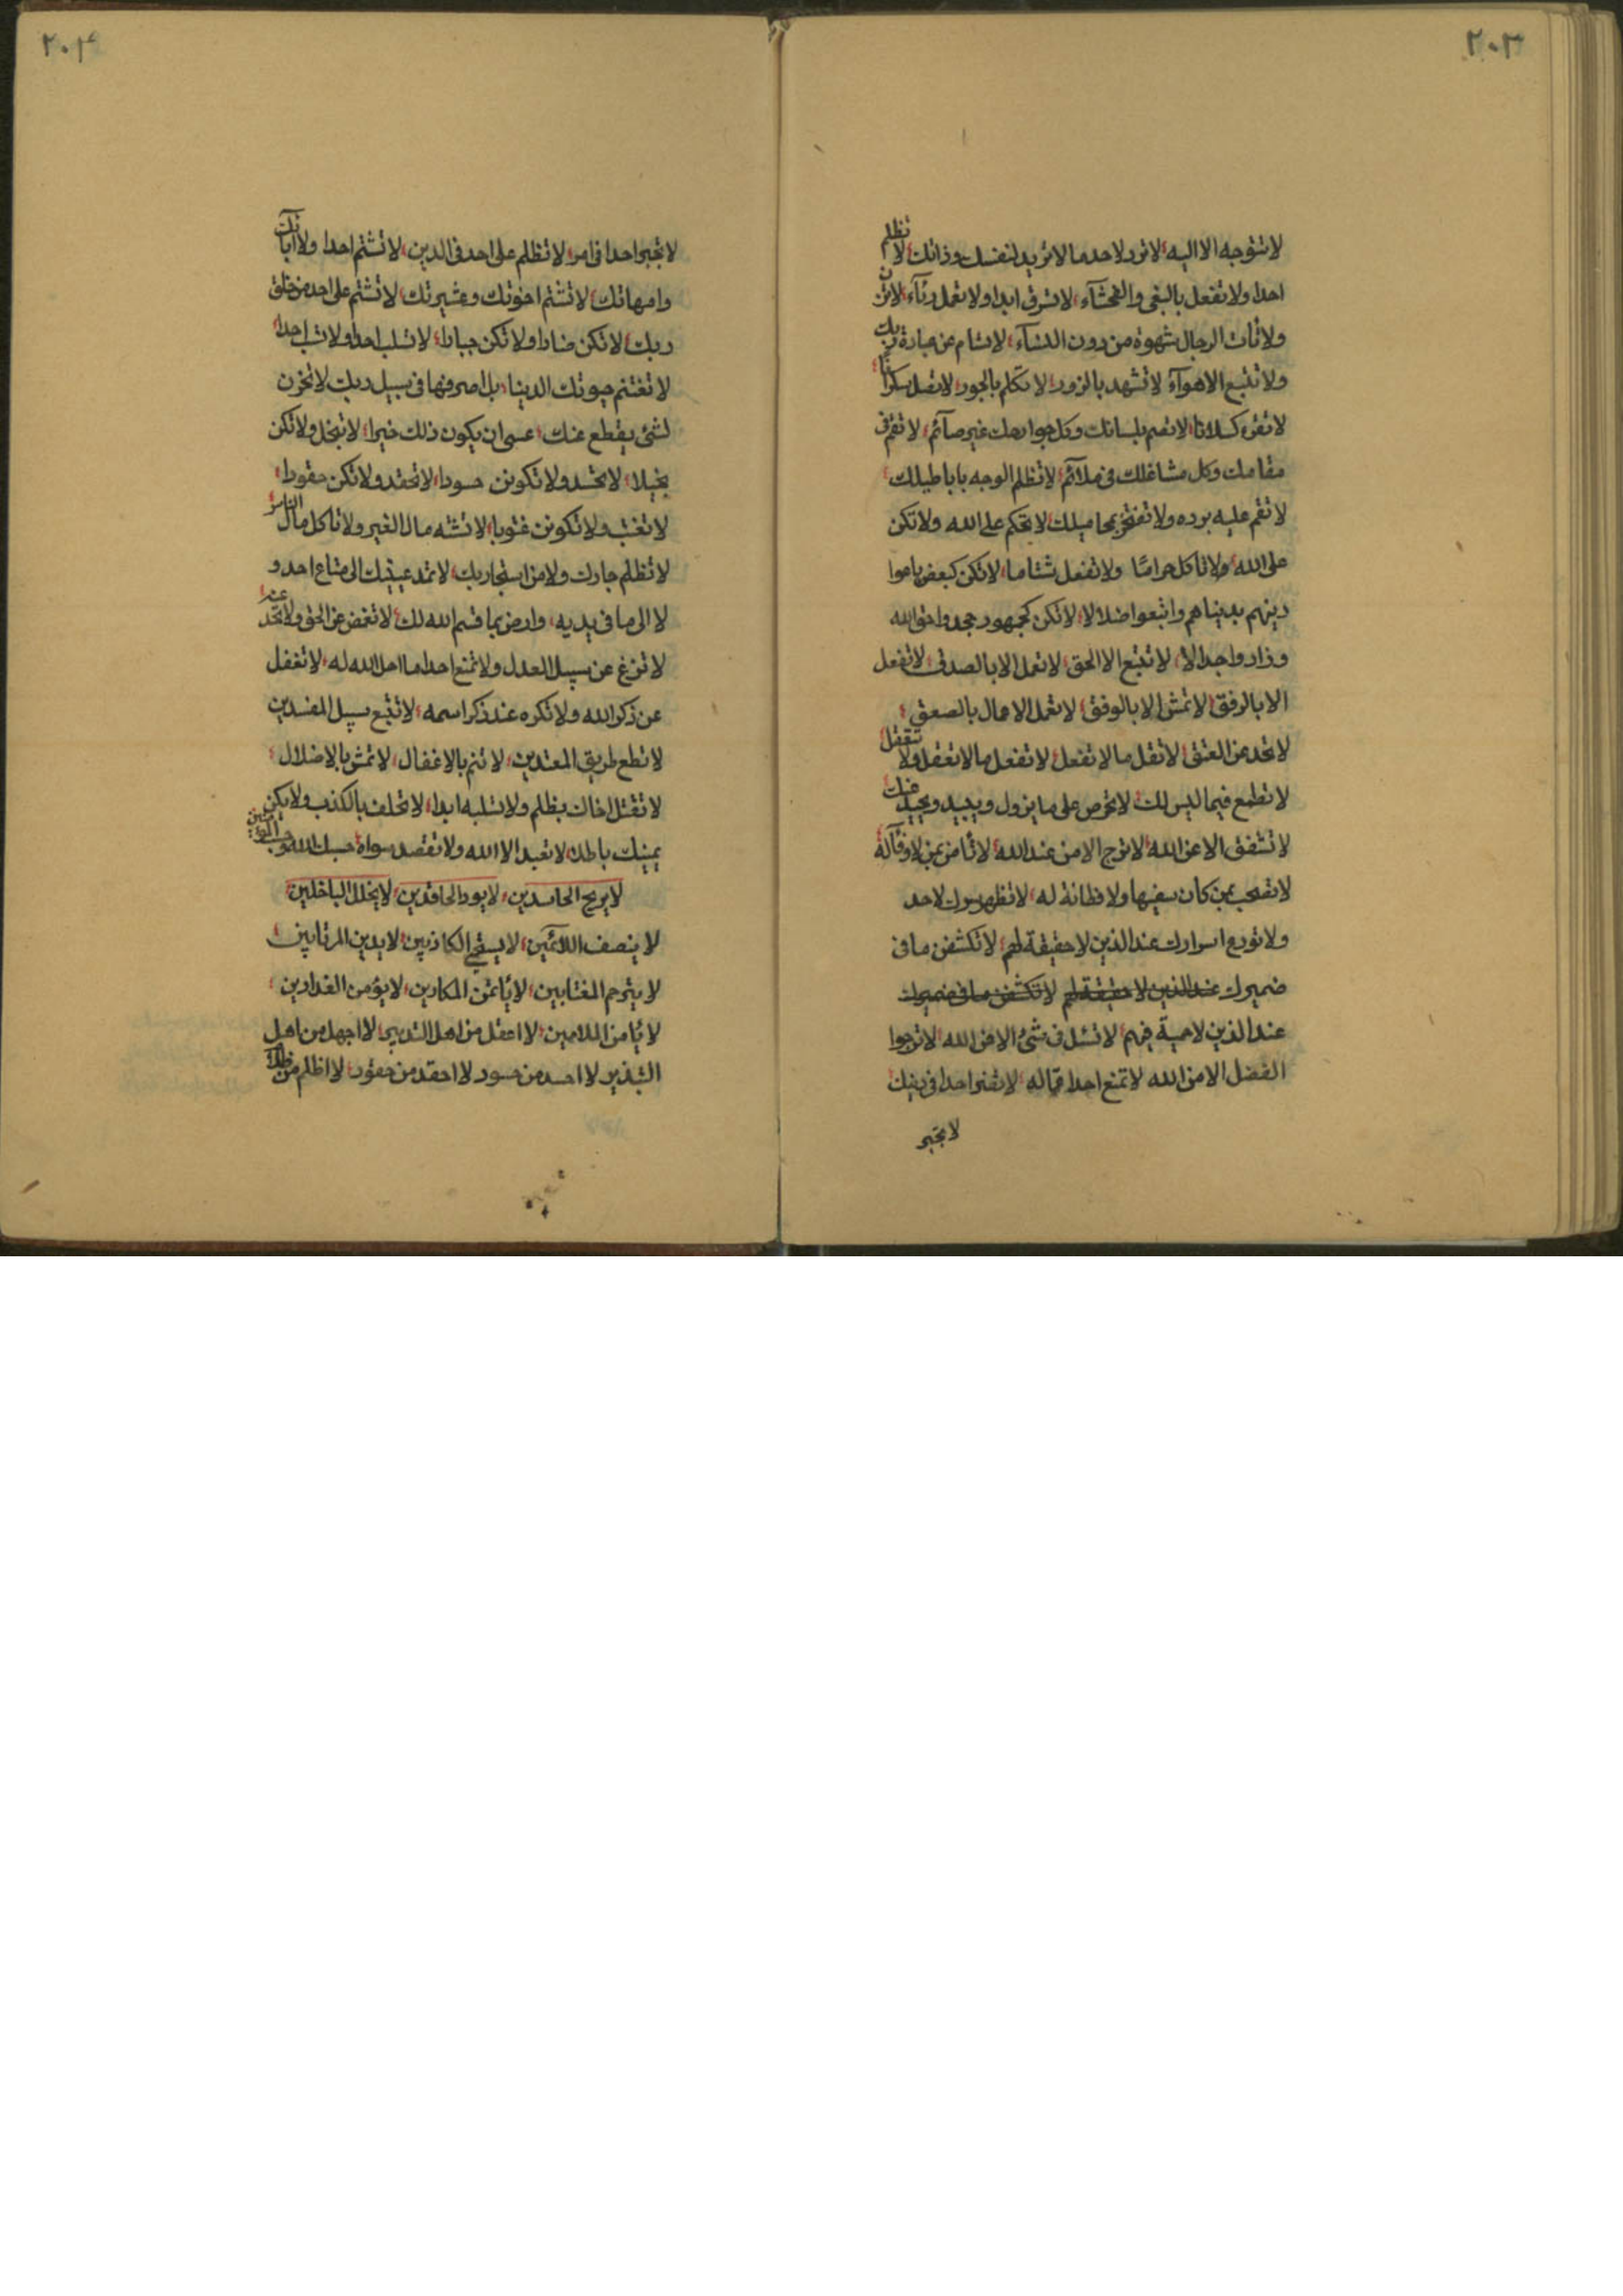 ٢٠٣
لا تتوجه الا اليه لا ترد لاحد ما لا تريد لنفسك وذاتك لا تظلم
احدا ولا تفعل بالبغى والفحشآء لا تسرق ابدا ولا تعمل رئآء لا تزن
ولا تأت الرجال شهوة من دون النسآء لا تسأم عن عبادة ربك
ولا تتبع الاهوآء لا تشهد بالزور لا تتكلم بالجور لا تصل سكرانا
لا تقره كسلانا لا تصم بلسانك وكل جوارحك غير صآئم لا تقم فى
مقامك وكل مشاغلك فى ملآئم لا تظلم الوجه باباطيلك
لا تقم عليه برده ولا تفتخر بمحاميلك لا تحكم على الله ولا تكن
على الله ولا تاكل حراما ولا تفعل شتاما لا تكن كبعض باعوا
دينهم بديناهم واتبعوا ضلالا لا تكن كجمهور جحدوا حق الله
وزادوا جدالا لا تتبع الا الحق لا تعمل الا بالصدق لا تفعل
الا بالرفق لا تمش الا بالوفق لا تعمل الاعمال بالصعق
لا تحد عن العتق لا تقل ما لا تفعل لا تفعل ما لا تعقل ولا تقفل
لا تطمع فيما ليس لك لا تحرص على ما يزول ويبيد ويحيد عنك
لا تشفق الا عن الله لا ترج الا من عند الله لا تأمن بمن لا وفآء له
لا تصحب بمن كان سفيها ولا فطانة له لا تظهر سرك لاحد
ولا تودع اسرارك عند الذين لا حقيقة لهم لا تكشف ما فى
ضميرك عند الذين لا حقيقة لهم لا تكشفن ما فى ضميرك
عند الذين لا حمية فيهم لا تسئل فى شئ الا من الله لا ترجوا
الفضل الا من الله لا تمنع احدا عما له لا تفتر احدا فى دينك
لا تجبر
٢٠٤
لا تجبر احدا فى امر لا تظلم على احد فى الدين لا تشتم احدا ولا آبائك
وامهاتك لا تشتم اخوتك وعشيرتك لا تشتم على احد من خلق
ربك لا تكن ضارا ولا تكن جبارا لا تسلب احدا ولا تسب احدا
لا تغتنم حيوتك الدنيا بل اصرفها فى سبيل ربك لا تحزن
لشئ يقطع عنك عسى ان يكون ذلك خيرا لا تبخل ولا تكن
بخيلا لا تحسد ولا تكونن حسودا لا تحقد ولا تكن حقودا
لا تغتب ولا تكونن غتوبا لا تشته مال الغير ولا تاكل مال الناس
لا تظلم جارك ولا من استجار بك لا تمد عينيك الى متاع احد و
لا الى ما فى يديه وارض بما قسم الله لك لا تغمض عن الحق ولا تحد عنه
لا تزغ عن سبيل العدل ولا تمنع احدا ما احل الله له لا تغفل
عن ذكر الله ولا تكره عند ذكر اسمه لا تتبع سبيل المفسدين
لا تطع طريق المعتدين لا تنم بالاغفال لا تمش بالاضلال
لا تقتل اخاك بظلم ولا تسلبه ابدا لا تحلف بالكذب ولا يكن
يمينك باطلا لا تعبد الا الله ولا تقصد سواه حسبك الله
لا يربح الحاسدين لا يود الحاقدين لا يخلل الباخلين
لا ينصف اللائمين لا يستحي الكاذبين لا يدين المرتابين
لا يترحم المغتابين لا يأتمن المكارين لا يؤمن الغدارين
لا يأمن اللاعبين لا اعقل من اهل التدبير لا اجهل من اهل
التبذير لا احسد من حسود لا احقد من حقود لا اظلم من